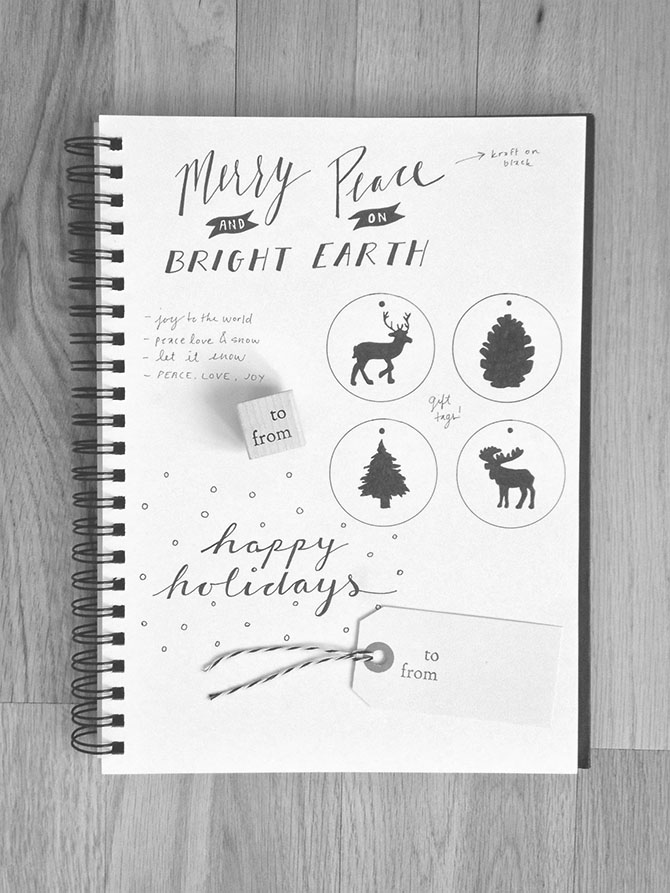 Merry
AND
BRIGHT
Peace
ON
EARTH
kraft on
black
- joy to the world
- peace love & snow
- let it snow
- PEACE, LOVE, JOY
to
from
gift
tags!
happy
holidays
to
from